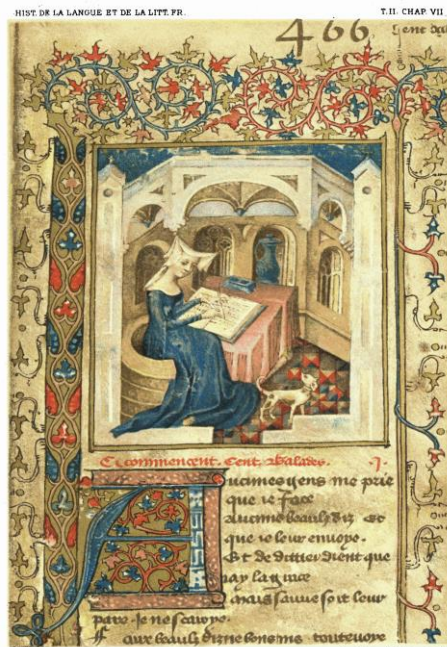 HIST. DE LA LANGUE ET DE LA LITT. FR.
T. II. CHAP. VII
466
Cent
Cy commencent. Cent. Balades. .j.
Aucunes gens me prie
que ie face
Aucuns beaulz diz et
que ie leur enuoye.
Et de dittier dient que
iay la grace
Mais sauue soit leur
paix. Je ne scauroye.
ff
faire beaulz diz ne bons mais toutevoye